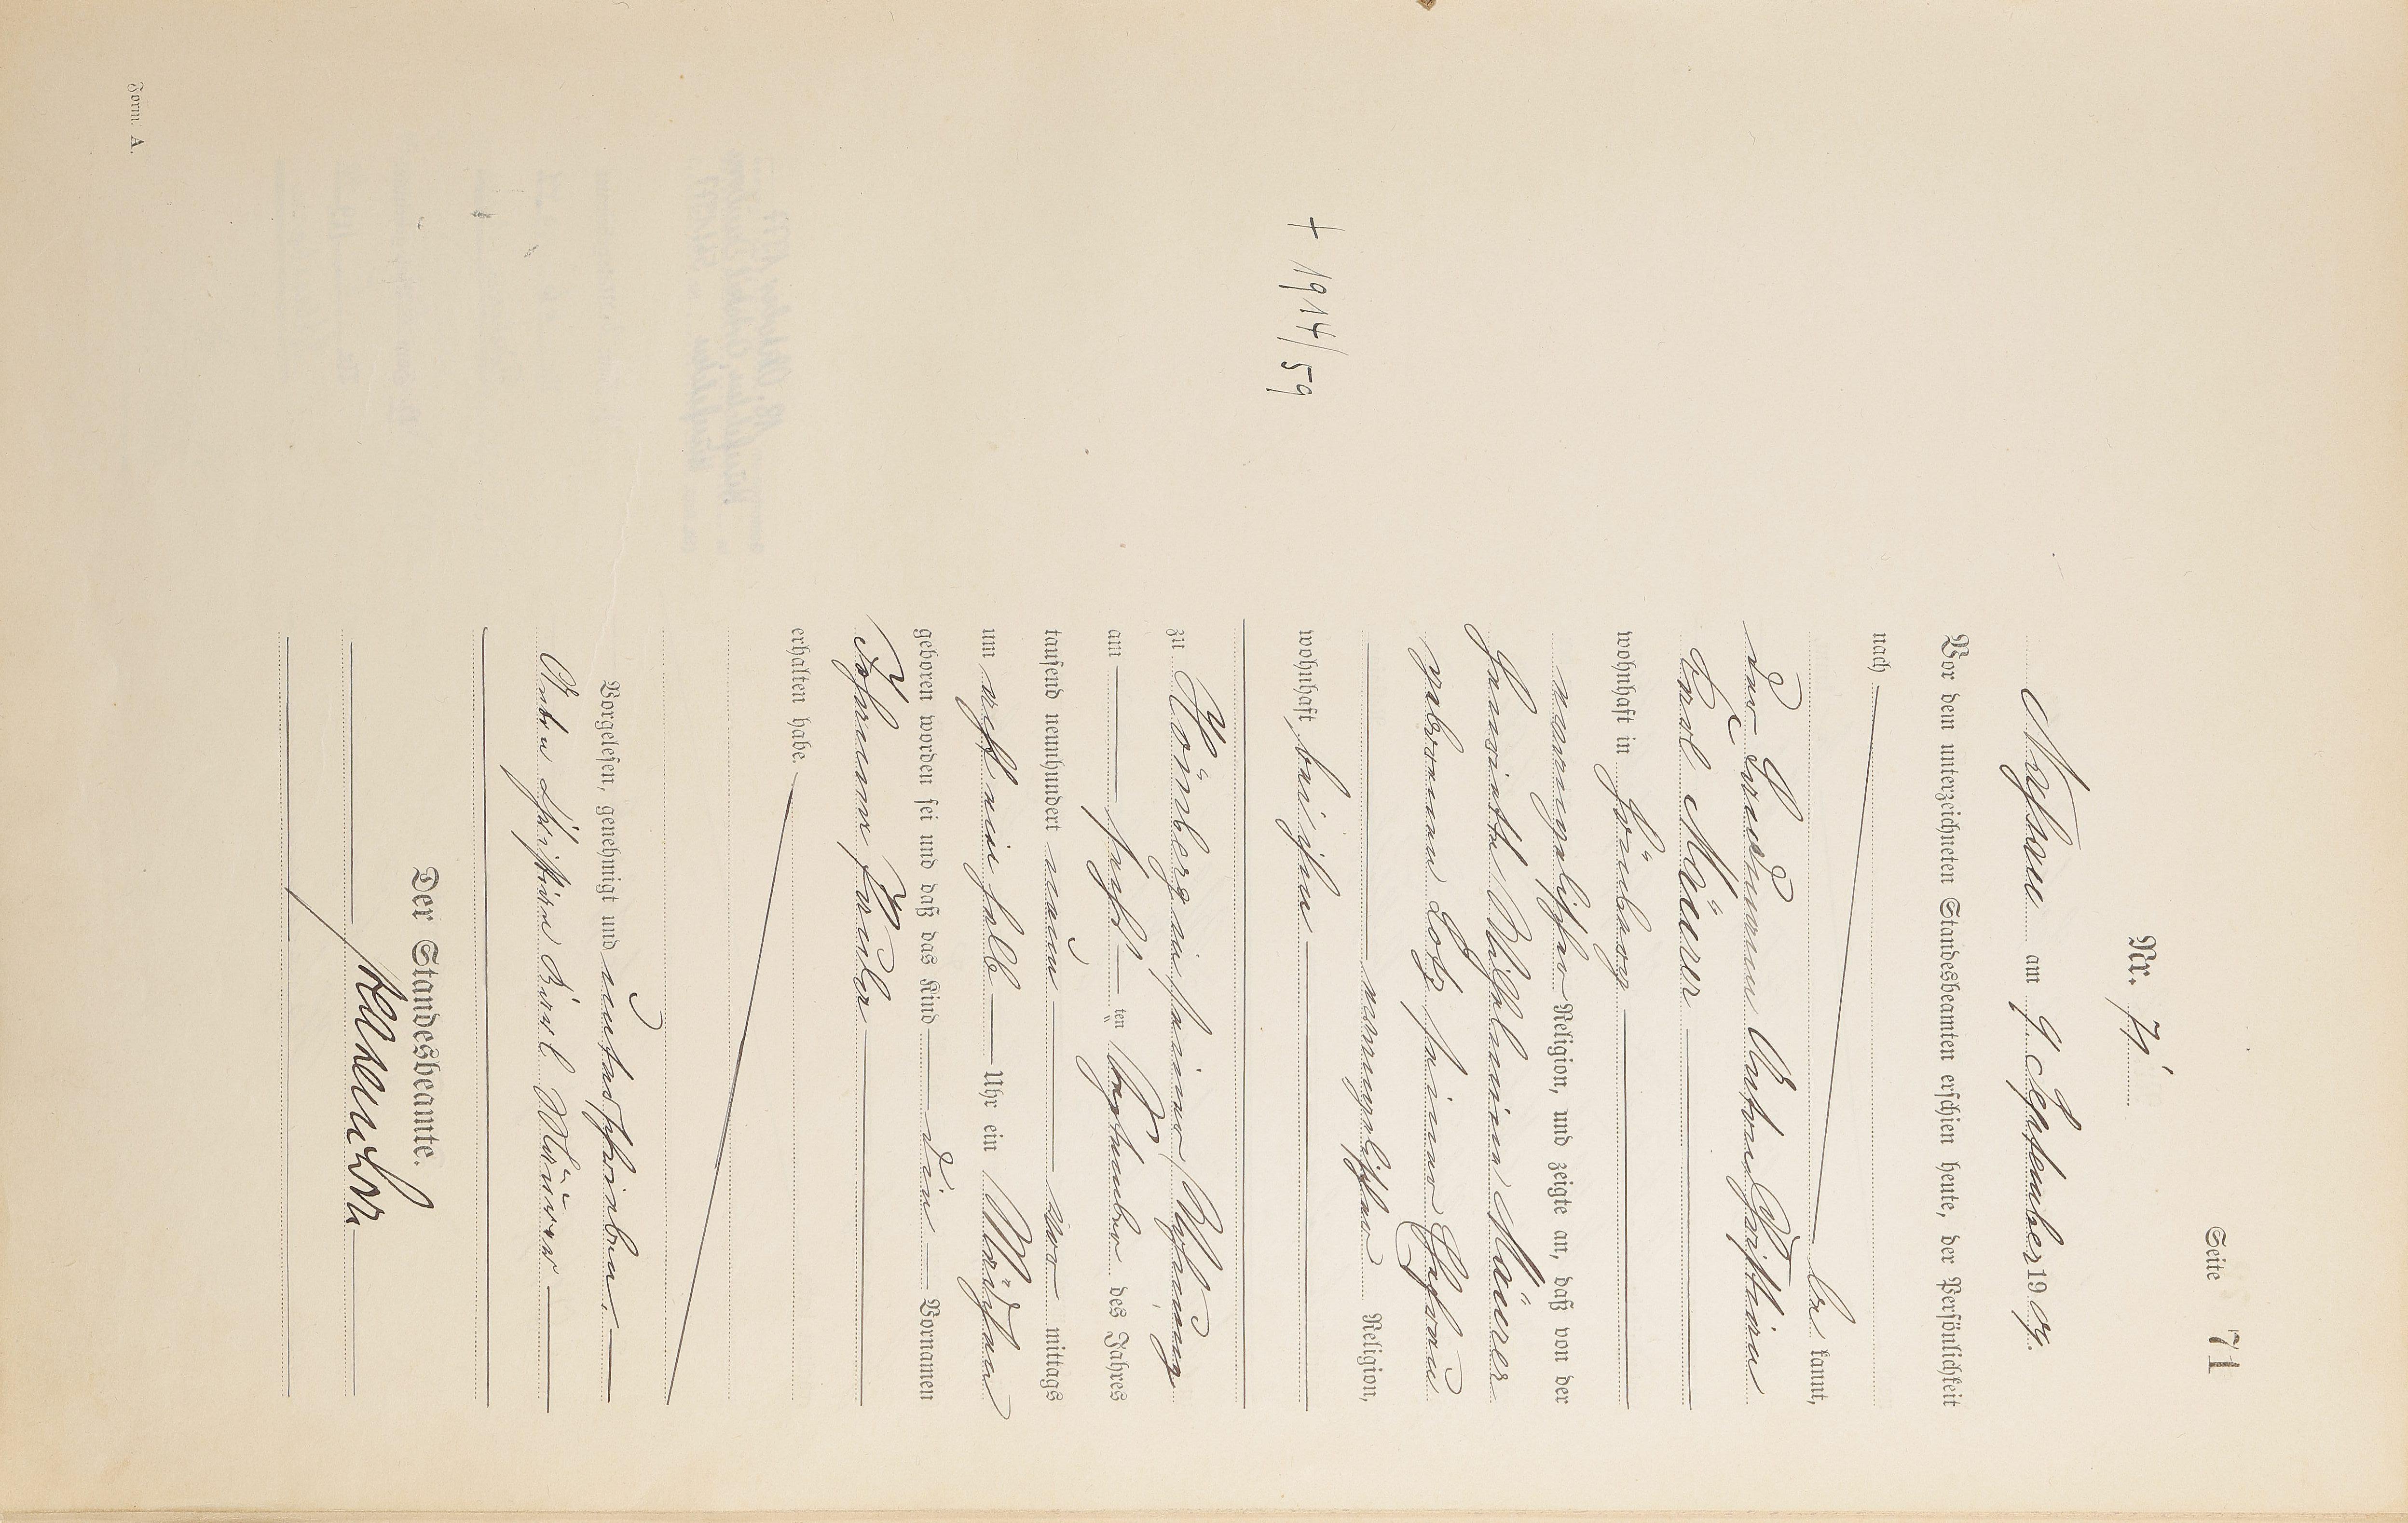 Seite 71
Nr. 71.
Nassau am 9. September 1909.
Vor dem unterzeichneten Standesbeamten erschien heute, der Persönlichkeit
nach
be kannt,
der Landmann Anton Christian
Karl Mäurer
wohnhaft in Hömberg
evangelischer Religion, und zeigte an, daß von der
Henriette Wilhelmine Mäurer
geborenen Lotz seiner Ehefrau
evangelischer Religion,
wohnhaft bei ihm
zu Hömberg in seiner Wohnung
am sechsten September des Jahres
tausend neunhundert neun vor mittags
um acht ein halb Uhr ein Mädchen
geboren worden sei und daß das Kind die Vornamen
Johanne Paula
erhalten habe.
+ 1914/59
Vorgelesen, genehmigt und unterschrieben
Anton Christian Karl Mäurer
Der Standesbeamte.
Form. A.